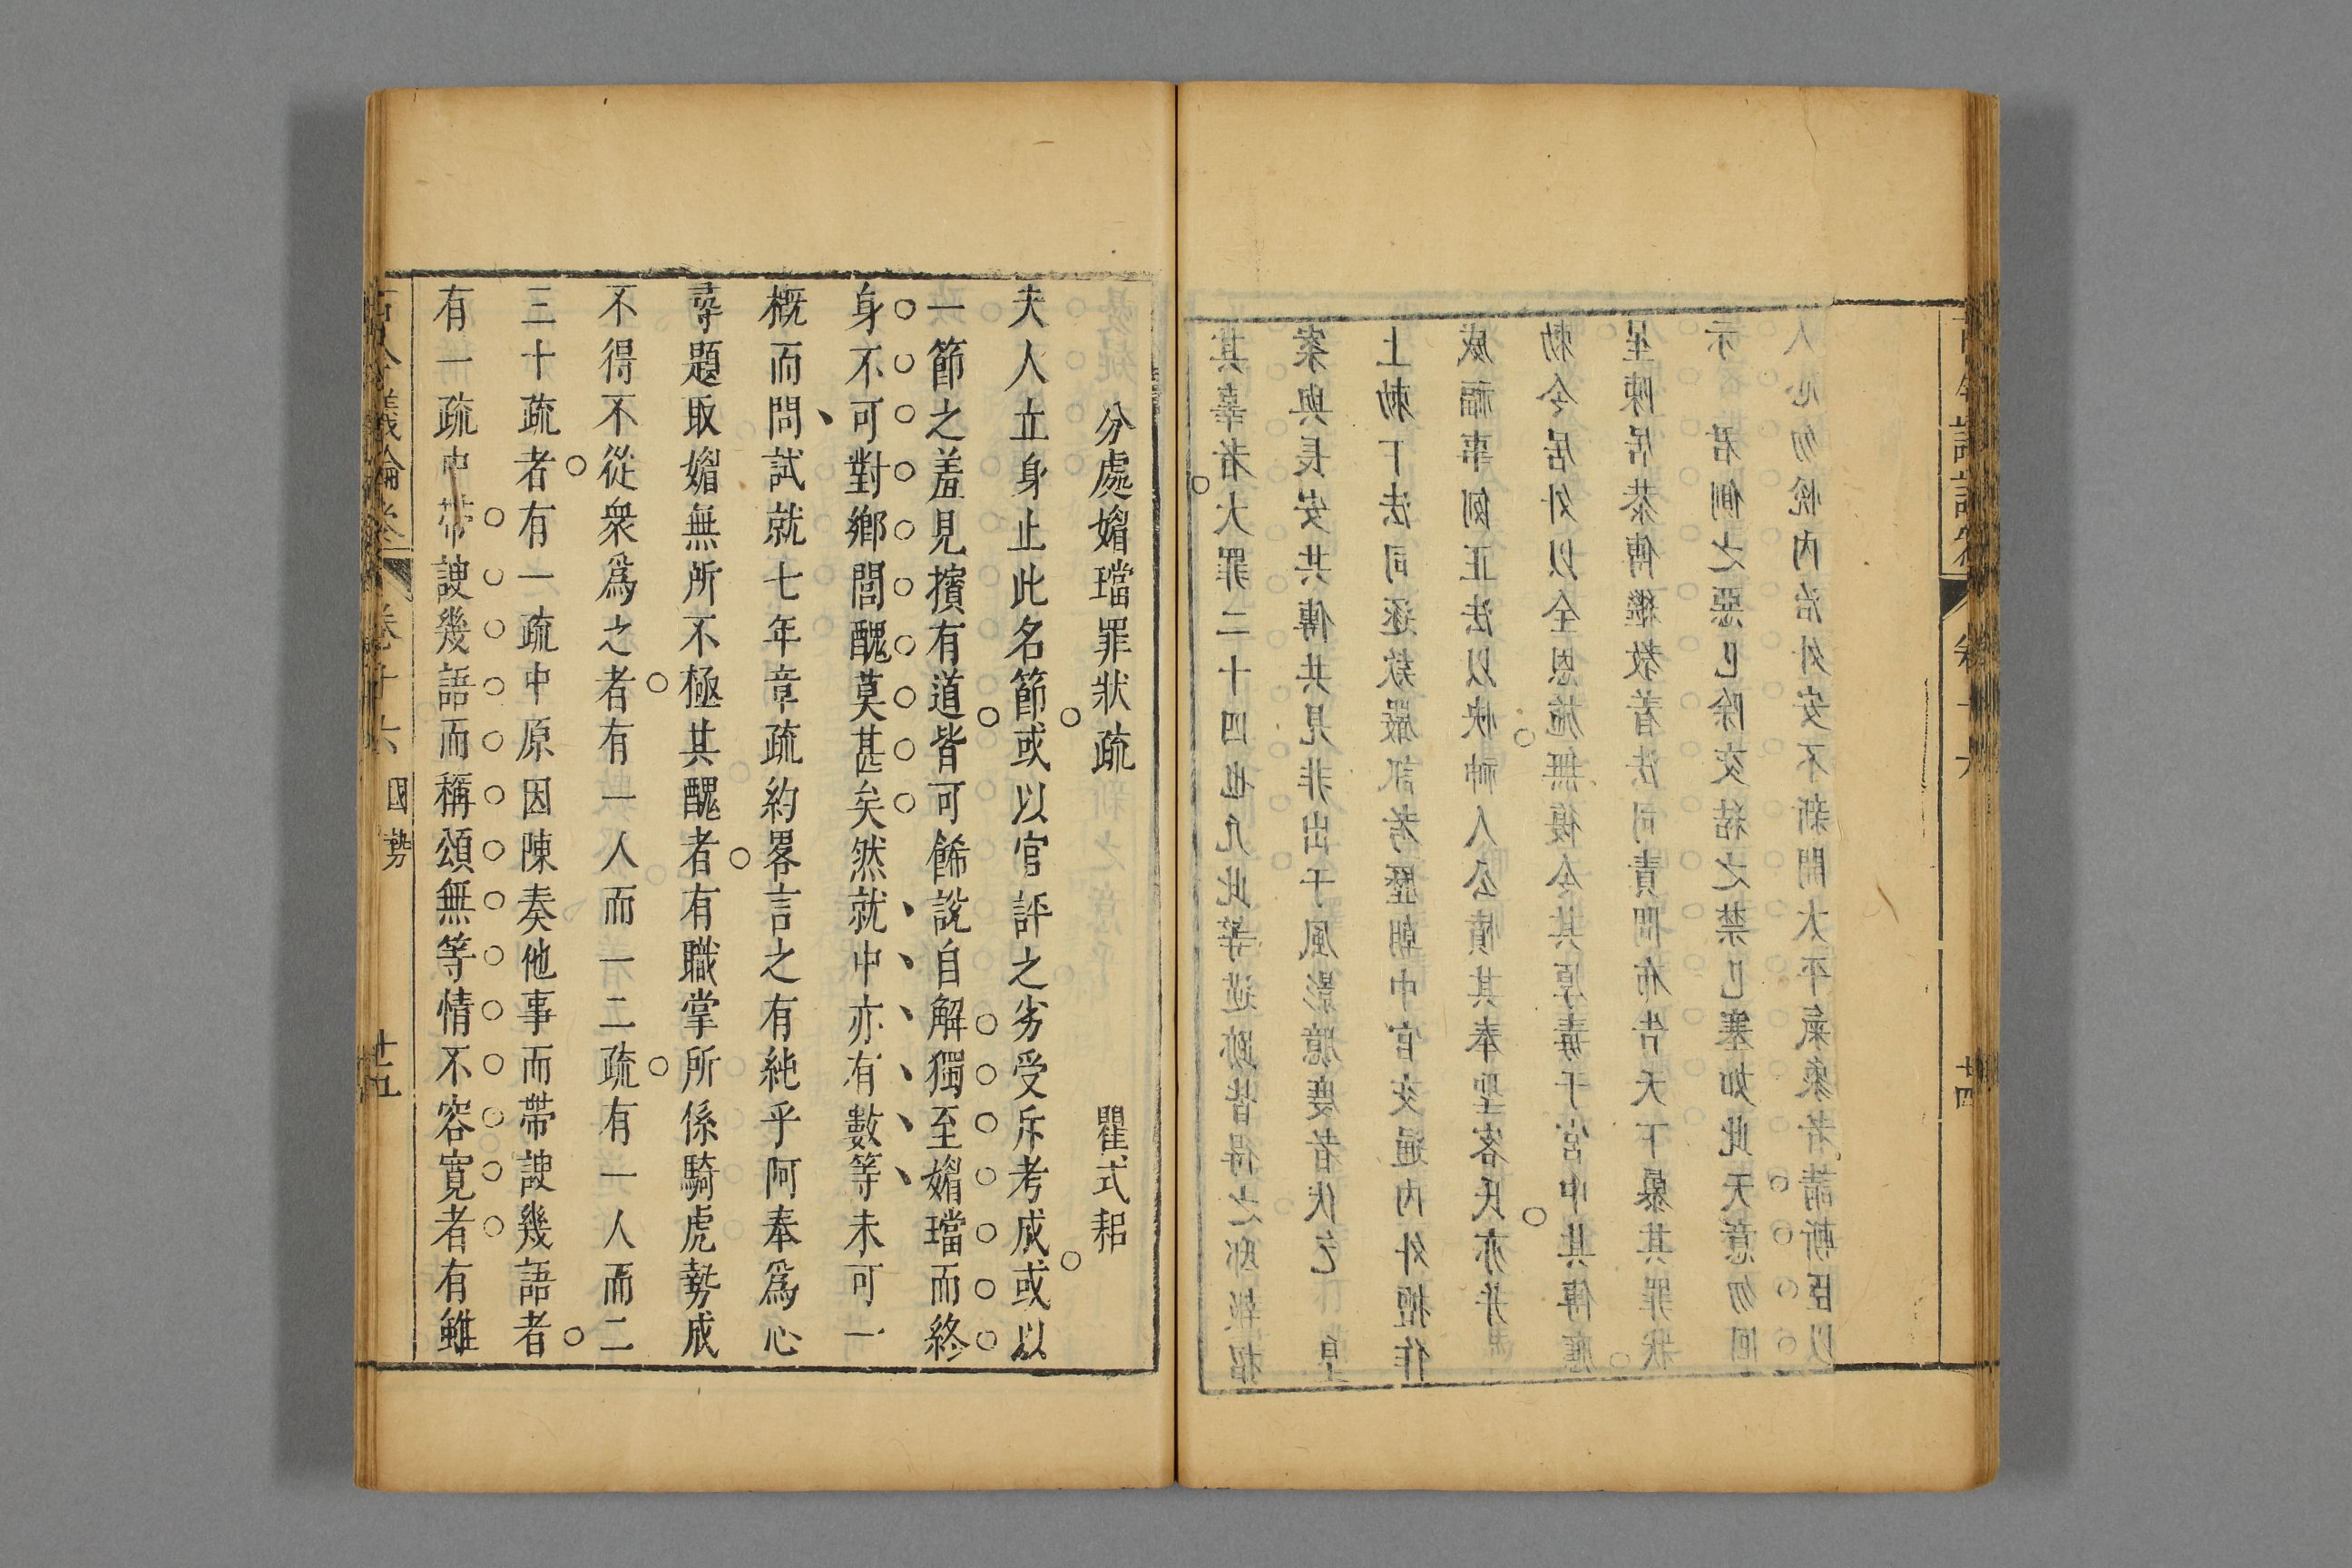 古今議論參 卷十六 廿四
其辜者大罪二十四也凡此等逆跡皆得之邸報招
案與長安共傳共見非出于風影臆度者伏乞 皇
上勅下法司逐款嚴訊考歷朝中官交通內外擅作
威福事例正法以快神人公憤其奉聖客氏亦并
勅令居外以全恩施無復令其厚毒于宮中其傅應
星陳居恭傅繼教着法司責問布告天下暴其罪狀
示君側之惡已除交結之禁已塞如此天意勿回
人心勿悅內治外安不新開太平氣象者請斬臣以
分處媚璫罪狀疏 瞿式耜
夫人立身止此名節或以官評之劣受斥考成或以
一節之羞見擯有道皆可餙說自解獨至媚璫而終
身不可對鄉閭醜莫甚矣然就中亦有數等未可一
概而問試就七年章疏約畧言之有純乎阿奉爲心
尋題取媚無所不極其醜者有職掌所係騎虎勢成
不得不從衆爲之者有一人而一二疏有一人而二
三十疏者有一疏中原因陳奏他事而帶諛幾語者
有一疏中帶諛幾語而稱頌無等情不容寬者有雖
古今議論參 卷十六 國勢 廿五